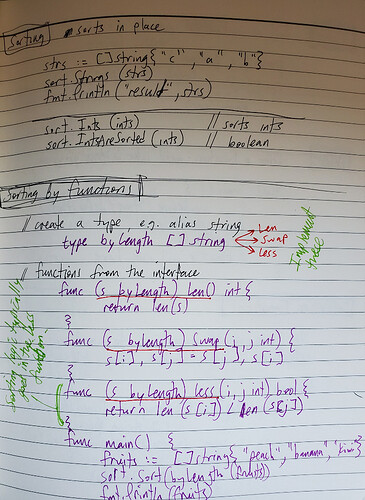 Sorting sorts in place
strs := []string{"c", "a", "b"}
sort.Strings (strs)
fmt.Println ("result", strs)
sort.Ints (ints) // sorts ints
sort.IntsAreSorted (ints) // boolean
Sorting by functions
// create a type, e.g. alias string
type byLength []string
Len
Swap
Less
Implement these
// functions from the interface
func (s byLength) Len() int {
return len(s)
}
func (s byLength) Swap(i, j int) {
s[i], s[j] = s[j], s[i]
}
func (s byLength) Less(i, j int) bool {
return len (s[i]) < len (s[j])
}
Sorting logic typically
goes in the Less
function.
func main() {
fruits := []string{"peach", "banana", "kiwi"}
sort.Sort(byLength(fruits))
fmt.Println(fruits)